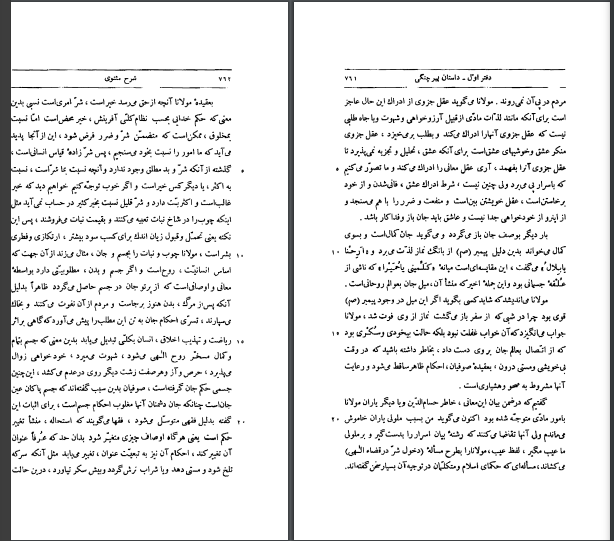 دفتر اول ـ داستان پیر چنگی
۷۶۱
مردم در پی آن نمی‌روند . مولانا می‌گوید عقل جزوی از ادراك این حال عاجز
است برای آنکه مانند لذات مادّی ازقبیل آرزوخواهی وشهوت ویا جاه طلبی
نیست که عقل جزوی آنها را ادراك می‌کند و بطلب برمی‌خیزد ، عقل جزوی
منکر عشق وخوشیهای عشق است برای آنکه عشق ، تحلیل و تجزیه نمی‌پذیرد تا
عقل جزوی آنرا بفهمد ، آری عقل معانی را ادراك می‌کند و ما تصوّر می‌کنیم
۵
که باسرار پی می‌برد ولی چنین نیست ، شرط ادراك عشق ، فانی‌شدن و از خود
برخاستن است ، عقل خویشتن بین است و منفعت و ضرر را با هم می‌سنجد و
از اینرو از خودخواهی جدا نیست و عاشق باید جان باز وفداکار باشد .
بار دیگر بوصف جان باز می‌گردد و می‌گوید جان کمال است و بسوی
کمال می‌خواند بدین دلیل پیمبر (ص) از بانگ نماز لذت می‌برد و «اَرِحْنا
۱۰
یابِلالُ» می‌گفت ، این مقایسه‌ای است میانهٔ «کَلِّمینی یا حُمَیْرا» که ناشی از
علاقهٔ جسمانی بود واین جملهٔ اخیر که منشأ آن، میل جان بعوالم روحانی است .
مولانا می‌اندیشد که شاید کسی بگوید اگر این میل در وجود پیمبر (ص)
قوی بود چرا در شبی که از سفر باز می‌گشت نماز از وی فوت شد ، مولانا
جواب می‌انگیزد که آن خواب غفلت نبود بلکه حالت بیخودی وسُکری بود
که از اتّصال بعالم جان بر وی دست داد ، بخاطر داشته باشید که در وقت
بی‌خویشی ومستی درون ، بعقیدهٔ صوفیان ، احکام ظاهر ساقط می‌شود و رعایت
آنها مشروط به صحو وهشیاری است .
گفتیم که درضمن بیان این معانی ، خاطر حسام‌الدّین ویا دیگر یاران مولانا
بامور مادّی متوجّه شده بود اکنون می‌گوید من بسبب ملولی یاران خاموش
۲۰
می‌ماندم ولی آنها تقاضا می‌کنند که رشتهٔ بیان اسرار را بدست گیر و بر ملولی
ما عیب مگیر ، لفظ عیب ، مولانا را بطرح مسألهٔ (دخول شرّ در قضاء الٰهی)
می‌کشاند ، مسأله‌ای که حکمای اسلام ومتکلّمان در توجیه آن بسیار سخن گفته‌اند.
۷۶۲
شرح مثنوی
بعقیدهٔ مولانا آنچه از حق می‌رسد خیر است ، شرّ امری است نسبی بدین
معنی که حکم خدایی بحسب نظام کلّی آفرینش ، خیر محض است امّا نسبت
بمخلوق ، ممکن است که متضمّن شرّ وضرر فرض شود ، این از آنجا پدید
می‌آید که ما امور را نسبت بخود می‌سنجیم ، پس شرّ زادهٔ قیاس انسانی است ،
گذشته از آنکه شرّ و بد مطلق وجود ندارد وآنچه نسبت بما شرّ است ، نسبت
۵
به اکثر ، یا دیگر کس خیر است و اگر خوب توجّه کنیم خواهیم دید که خیر
غالب است و اکثریّت دارد و شرّ قلیل نسبت بخیر کثیر در حساب نمی‌آید مثل
اینکه چوب را در شاخ نبات تعبیه می‌کنند و بقیمت نبات می‌فروشند ، پس این
نکته یعنی تحمّل وقبول زیان اندك برای کسب سود بیشتر ، ارتکازی وفطری
بشر است ، مولانا چوب و نبات را بجسم و جان ، مثال می‌زند از آن جهت که
۱۰
اساس انسانیّت ، روح است و اگر جسم و بدن ، مطلوبیّتی دارد بواسطهٔ
معانی واوصافی است که از پرتو جان در جسم حاصل می‌گردد ظاهراً بدلیل
آنکه پس از مرگ ، بدن هنوز برجاست و مردم از آن نفرت می‌کنند و بخاك
می‌سپارند ، تسرّی احکام جان به تن این مطلب را پیش می‌آورد که گاهی براثر
ریاضت و تهذیب اخلاق ، انسان بکلّی تبدیل می‌یابد بدین معنی که جسم بتمام
۱۵
وکمال مسخّر روح الٰهی می‌شود ، شهوت می‌میرد ، خودخواهی زوال
می‌پذیرد ، حرص وآز وهرصفت زشت دیگر روی درعدم می‌کشد ، این‌چنین
جسمی حکم جان گرفته است ، صوفیان بدین سبب گفته‌اند که جسم پاکان عین
جان است چنانکه جان دشمنان آنها مغلوب احکام جسم است ، برای اثبات این
گفته بدلیل فقهی متوسّل می‌شود ، فقها می‌گویند که استحاله ، منشأ تغییر
۲۰
حکم است یعنی هرگاه اوصاف چیزی متغیّر شود بدان حد که عُرفاً عنوان
آن تغییر کند ، احکام آن نیز به تبعیّت عنوان ، تغییر می‌یابد مثل آنکه سرکه
تلخ شود و مستی دهد ویا شراب ترش گردد وبیش سکر نیاورد ، درین حالت